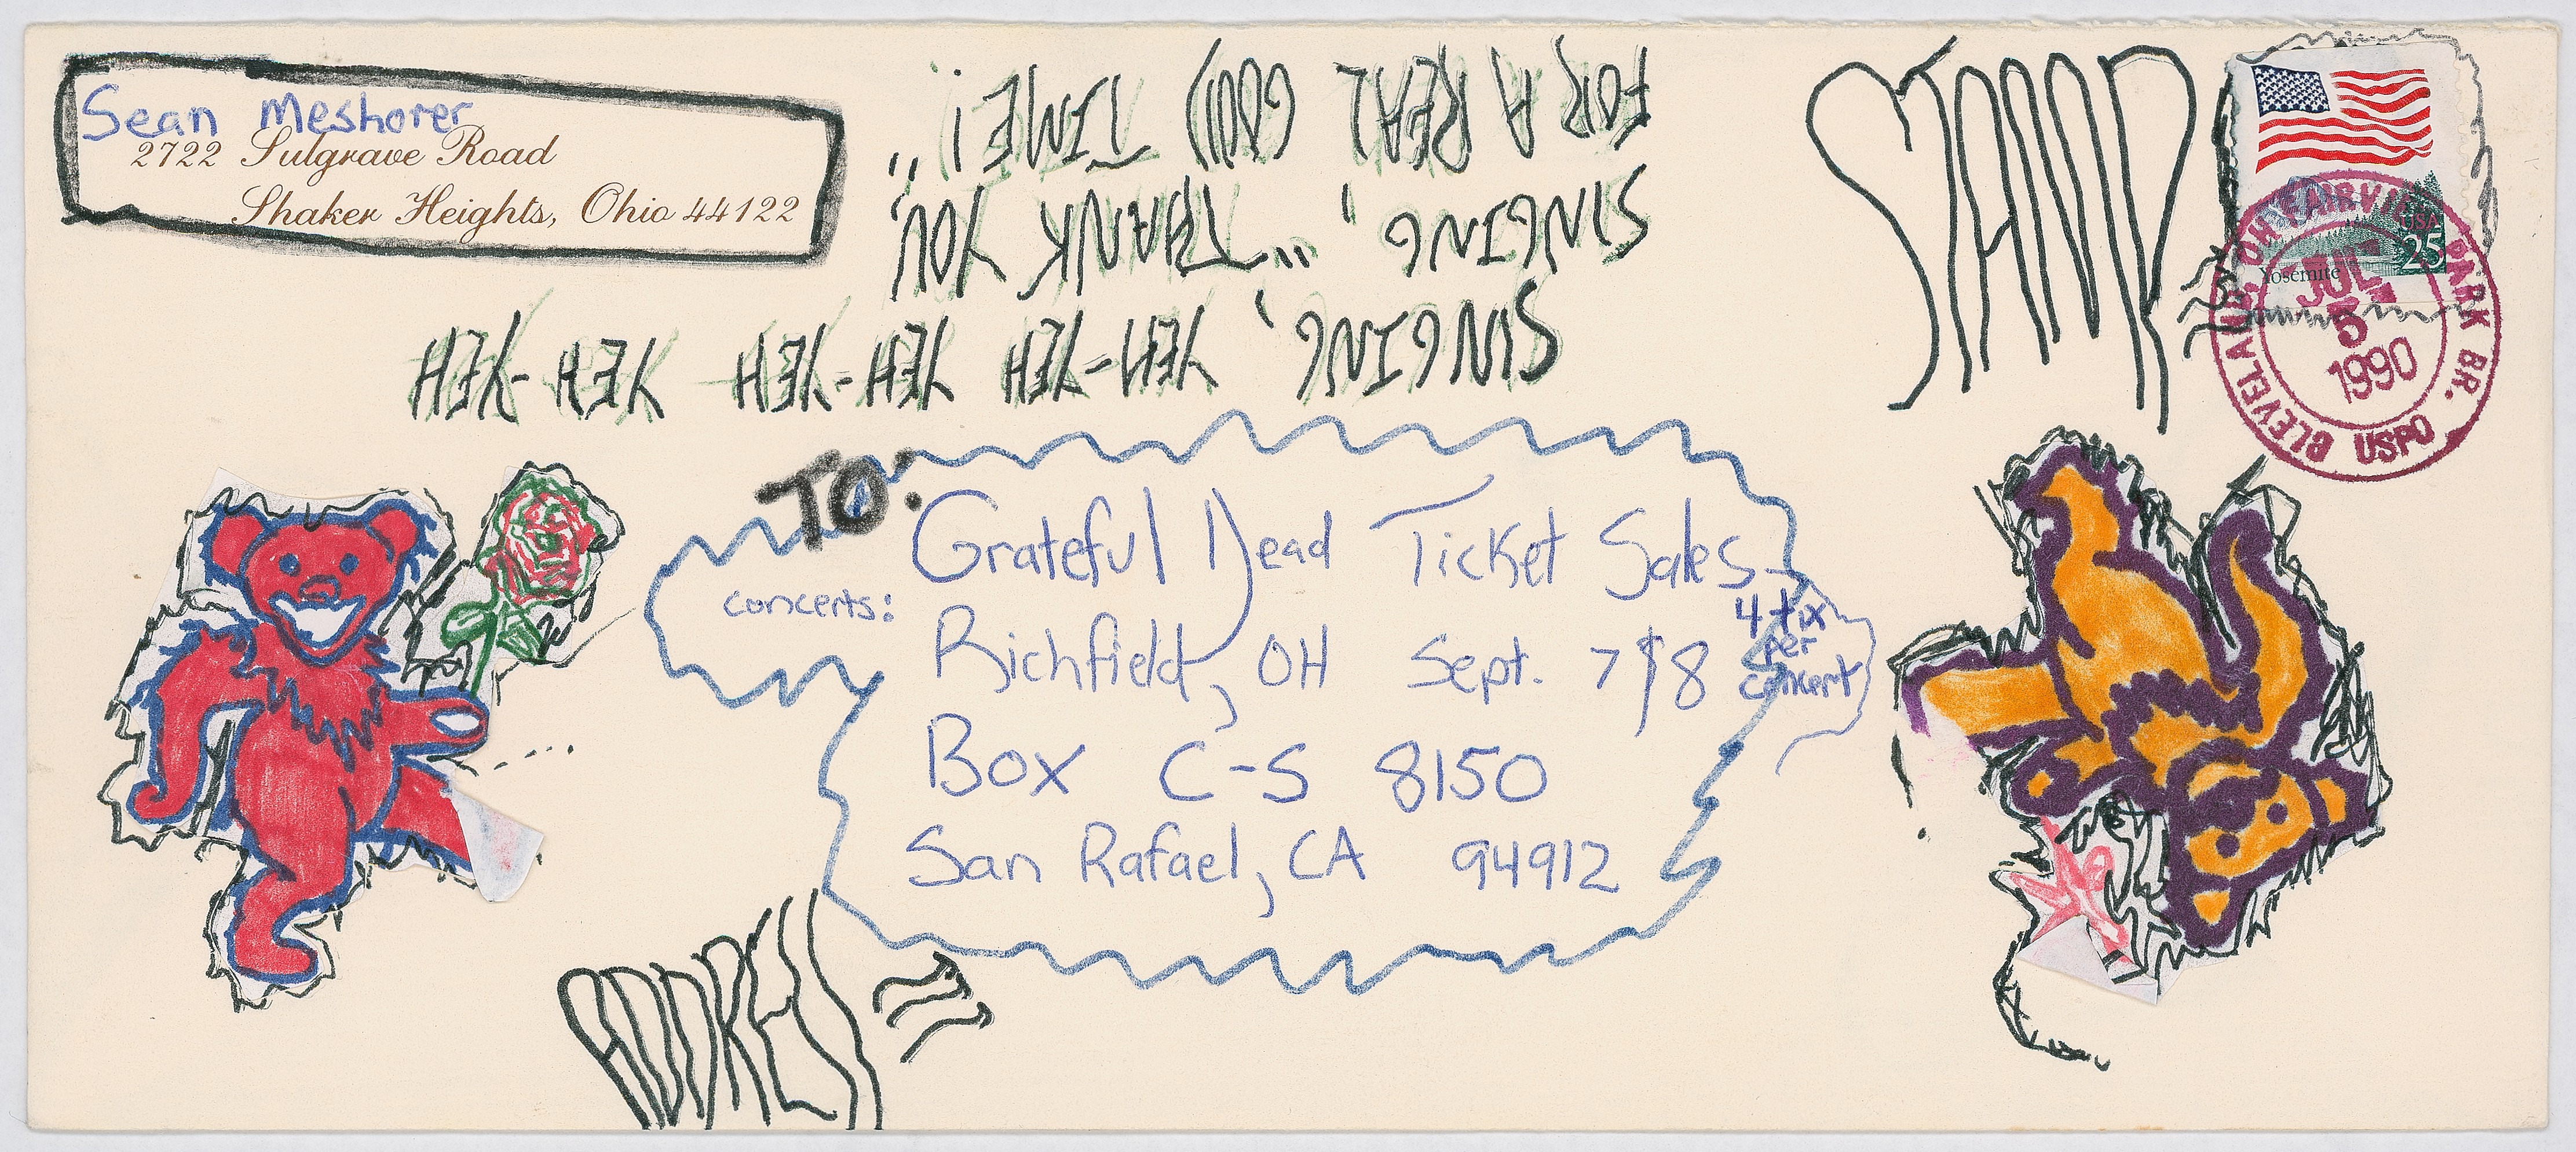 Sean Meshorer
2722 Sulgrave Road
Shaker Heights, Ohio 44122
SINGING, YEH-YEH YEH-YEH YEH-YEH
SINGING, "THANK YOU,
FOR A REAL GOOD TIME!"
STAMP
USA
25
Yosemite
CLEVELAND, OH FAIRVIEW PARK BR.
JUL
5
1990
USPO
TO:
Grateful Dead Ticket Sales
concerts:
Richfield, OH Sept. 7 & 8
4 tix
per
concert
Box C-S 8150
San Rafael, CA 94912
ADDRESS